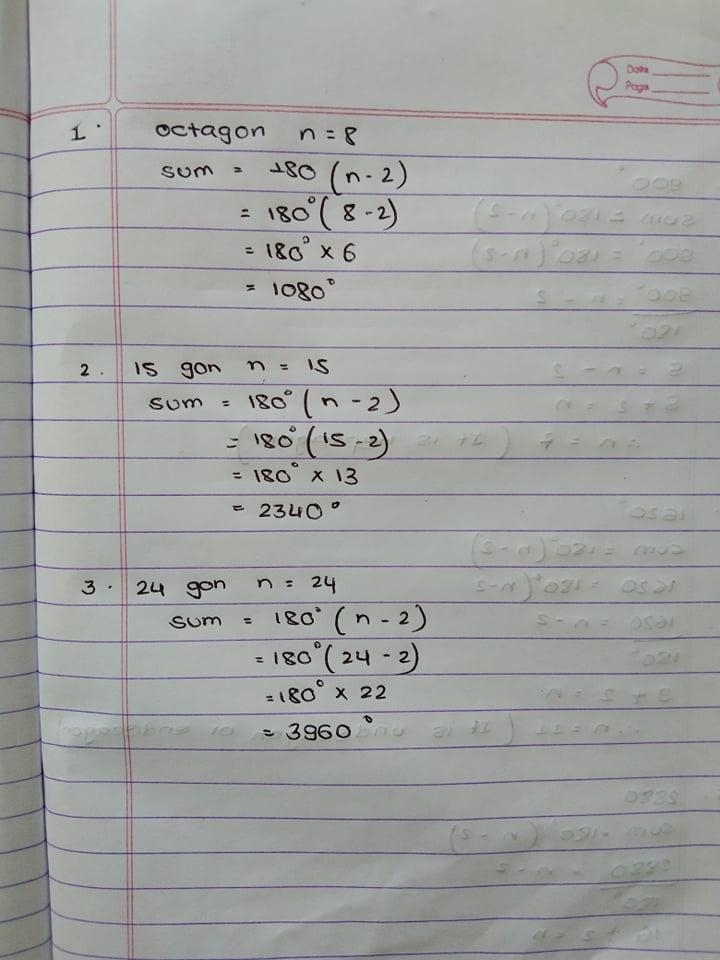 Date
Page
1. octagon n = 8
sum = 180 (n - 2)
= 180° (8 - 2)
= 180° × 6
= 1080°
2. 15 gon n = 15
sum = 180° (n - 2)
= 180° (15 - 2)
= 180° × 13
= 2340°
3. 24 gon n = 24
sum = 180° (n - 2)
= 180° (24 - 2)
= 180° × 22
= 3960°